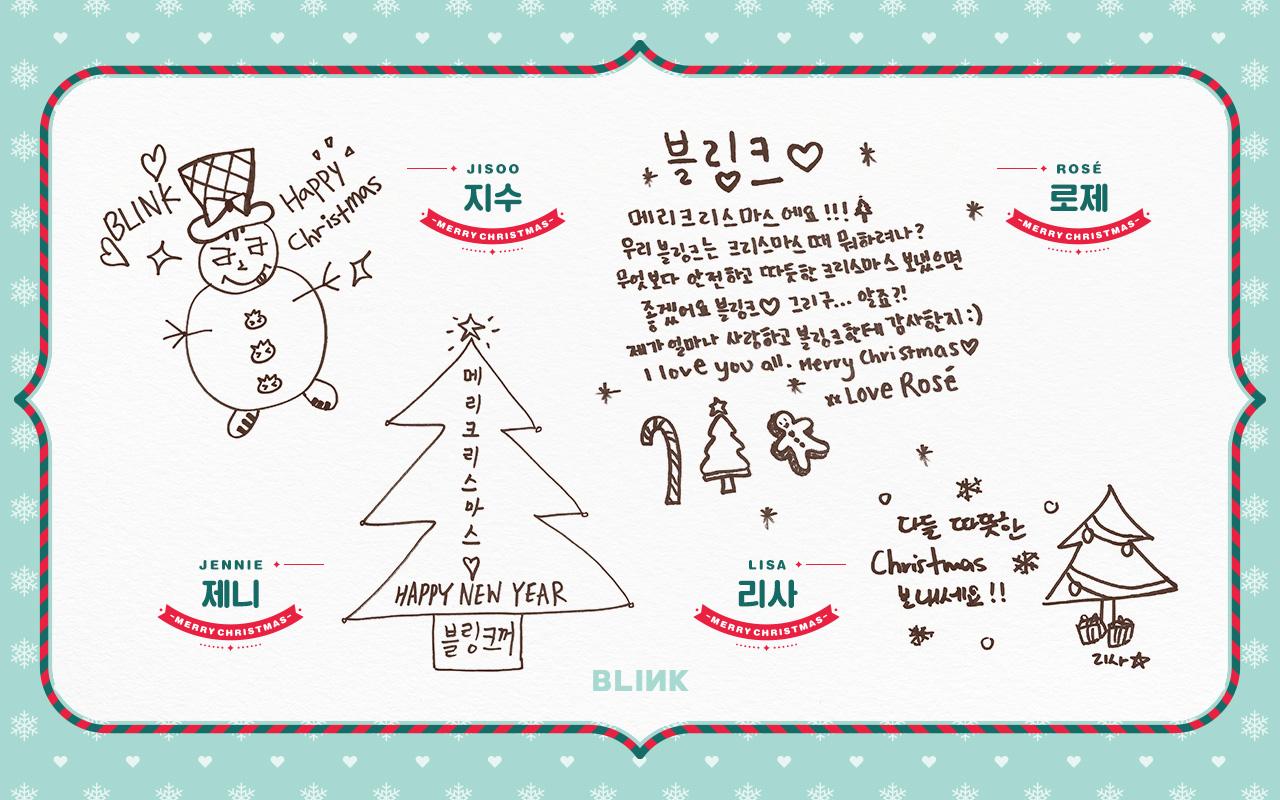 BLINK
Happy
Christmas
JISOO
지수
MERRY CHRISTMAS
블링크♡
메리크리스마스에요!!!
우리 블링크는 크리스마스때 뭐하려나?
무엇보다 안전하고 따듯한 크리스마스 보냈으면
좋겠어요 블링크♡ 그리구... 알죠?!
제가 얼마나 사랑하고 블링크한테 감사한지:)
I love you all. Merry Christmas♡
xx Love Rosé
ROSÉ
로제
MERRY CHRISTMAS
JENNIE
제니
MERRY CHRISTMAS
메리크리스마스♡
HAPPY NEW YEAR
블링크꺼
LISA
리사
MERRY CHRISTMAS
다들 따뜻한
Christmas
보내세요!!
리사☆
BLINK